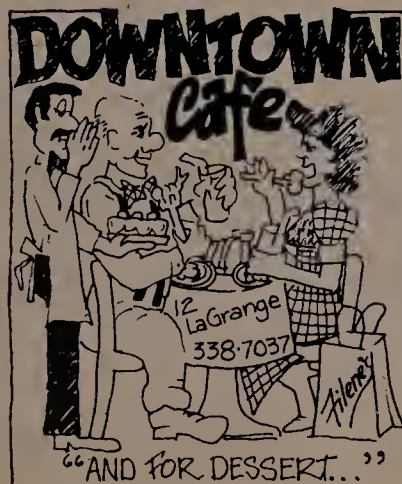 DOWNTOWN
Cafe
12
LaGrange
338-7037
Filene's
"AND FOR DESSERT..."